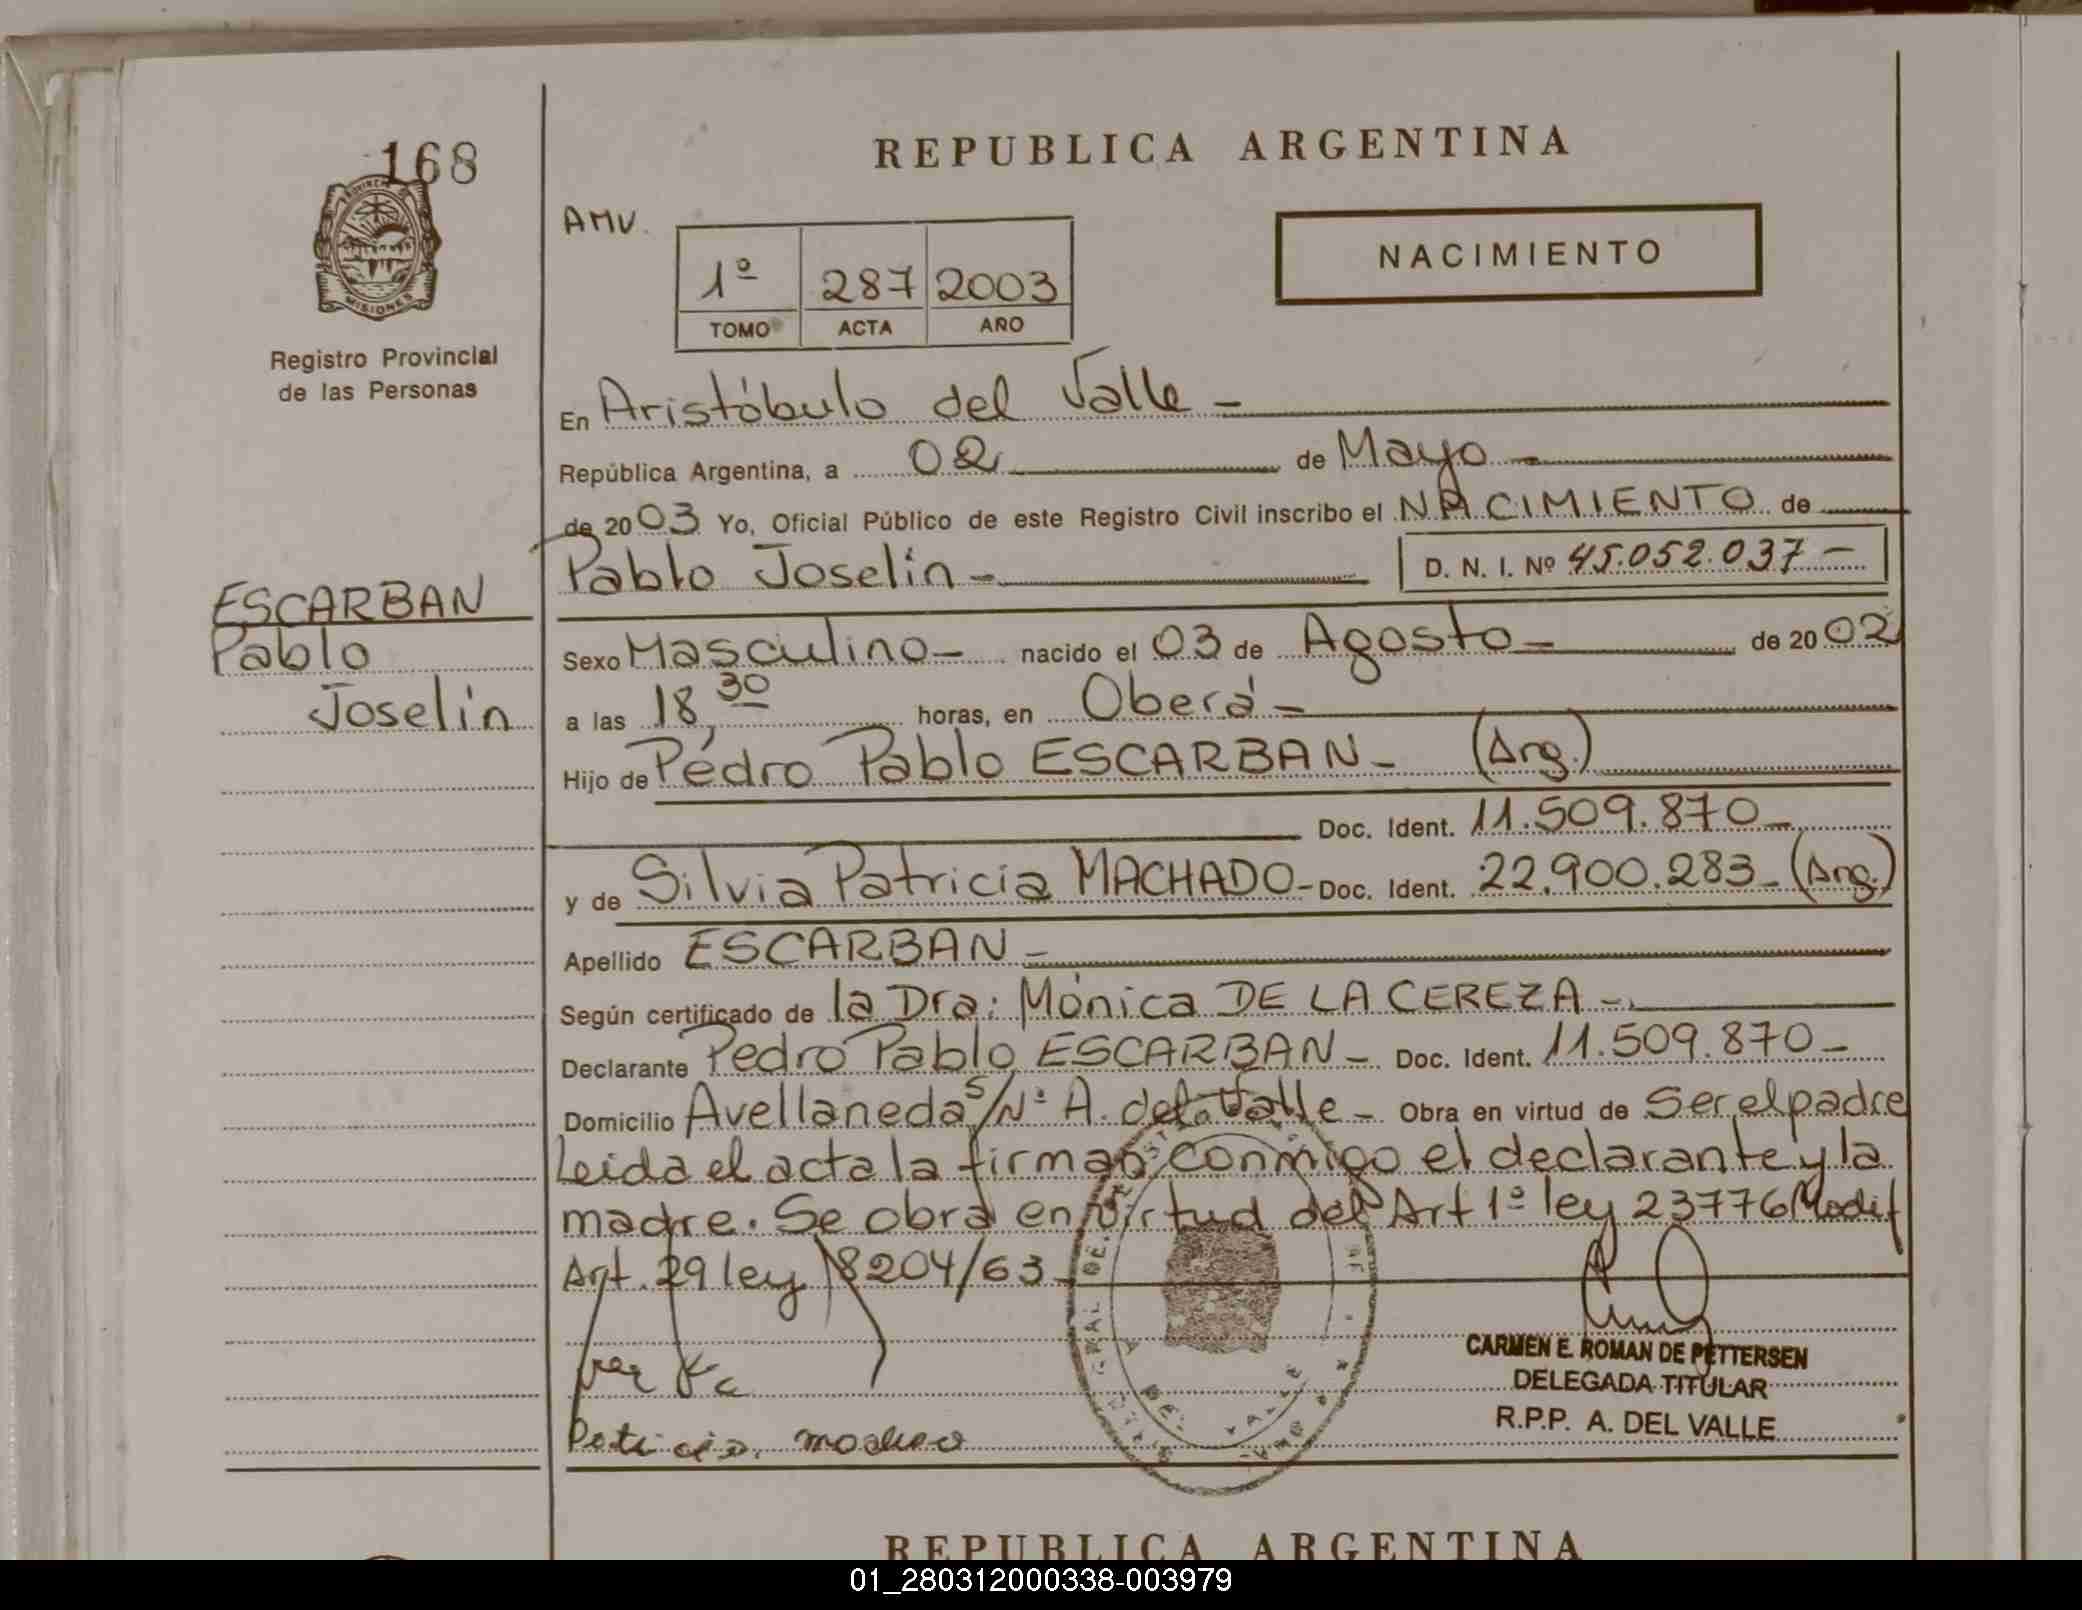 168
PROVINCIA
MISIONES
Registro Provincial
de las Personas
ESCARBAN
Pablo
Joselín
REPUBLICA ARGENTINA
AMV.
1º 287 2003
TOMO ACTA AÑO
NACIMIENTO
En Aristóbulo del Valle -
República Argentina, a 02 de Mayo -
de 2003 Yo, Oficial Público de este Registro Civil inscribo el NACIMIENTO de
Pablo Joselín - D. N. I. Nº 45.052.037 -
Sexo Masculino - nacido el 03 de Agosto - de 2002
a las 18,30 horas, en Oberá -
Hijo de Pedro Pablo ESCARBAN - (Arg.)
Doc. Ident. 11.509.870 -
y de Silvia Patricia MACHADO - Doc. Ident. 22.900.283 - (Arg.)
Apellido ESCARBAN -
Según certificado de la Dra: Mónica DE LA CEREZA -
Declarante Pedro Pablo ESCARBAN - Doc. Ident. 11.509.870 -
Domicilio Avellaneda S/Nº A. del Valle - Obra en virtud de Ser el padre
Leída el acta la firman conmigo el declarante y la
madre. Se obra en virtud del Art 1º ley 23776 Modif
Art. 29 ley 8204/63 -
CARMEN E. ROMAN DE PETTERSEN
DELEGADA TITULAR
R.P.P. A. DEL VALLE
A. DEL VALLE
REPUBLICA ARGENTINA
01_280312000338-003979